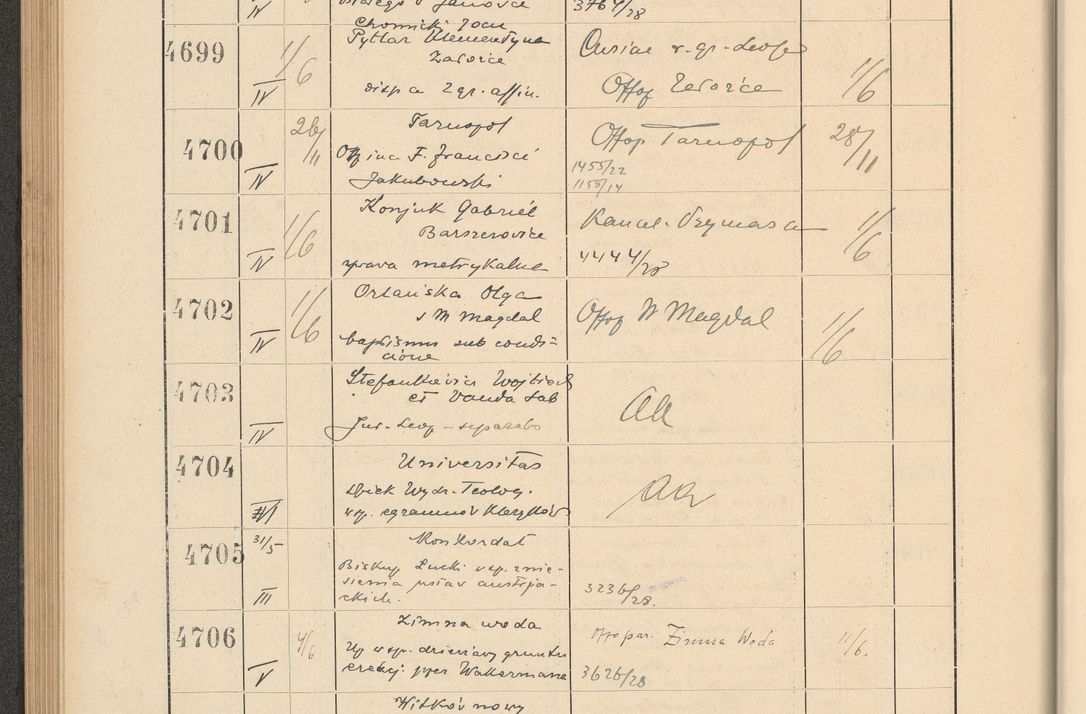 IV
3764/28
Chomicki Joan
4699
1/6
IV
Pyttar Klementyna
Zarvice
disp a 2 gr. affin.
Curiae r. gr. Leop
Offop
1/6
4700
28/11
IV
Tarnopol
Francisci
Jakubowski
Offop Tarnopol
1455/22
1158/14
28/11
4701
1/6
IV
Konjuk Gabriel
Barszczowice
sprawa metrykalna
Kancel. Prymasa
4444/28
1/6
4702
1/6
IV
Orlańska Olga
s M Magdal
baptismus sub condi-
cione
Offop M Magdal
1/6
4703
IV
Stefankiewicz Wojciech
et Vanda
Jur. Leop - separatio
aa
4704
Universitas
Dziek Wydz. Teolog.
wsp. egzaminów kleryków
aa
4705
31/5
III
Konkordat
Biskup Łucki wsp. znie-
sienia ustaw austrja-
ckich.
3236/28.
4706
4/6
V
Zimna woda
wsp. dzierżawy gruntu
erekcj. przez Wakermana
Off par. Zimna Woda
3626/28
11/6.
Witków nowy